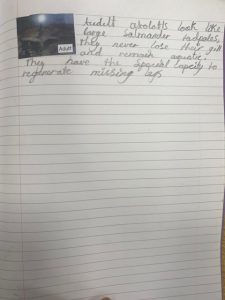 Adult axolotls look like
large salamander tadpoles,
they never lose their gill
and remain aquatic.
They have the special capeity to
regenerate missing legs
Adult